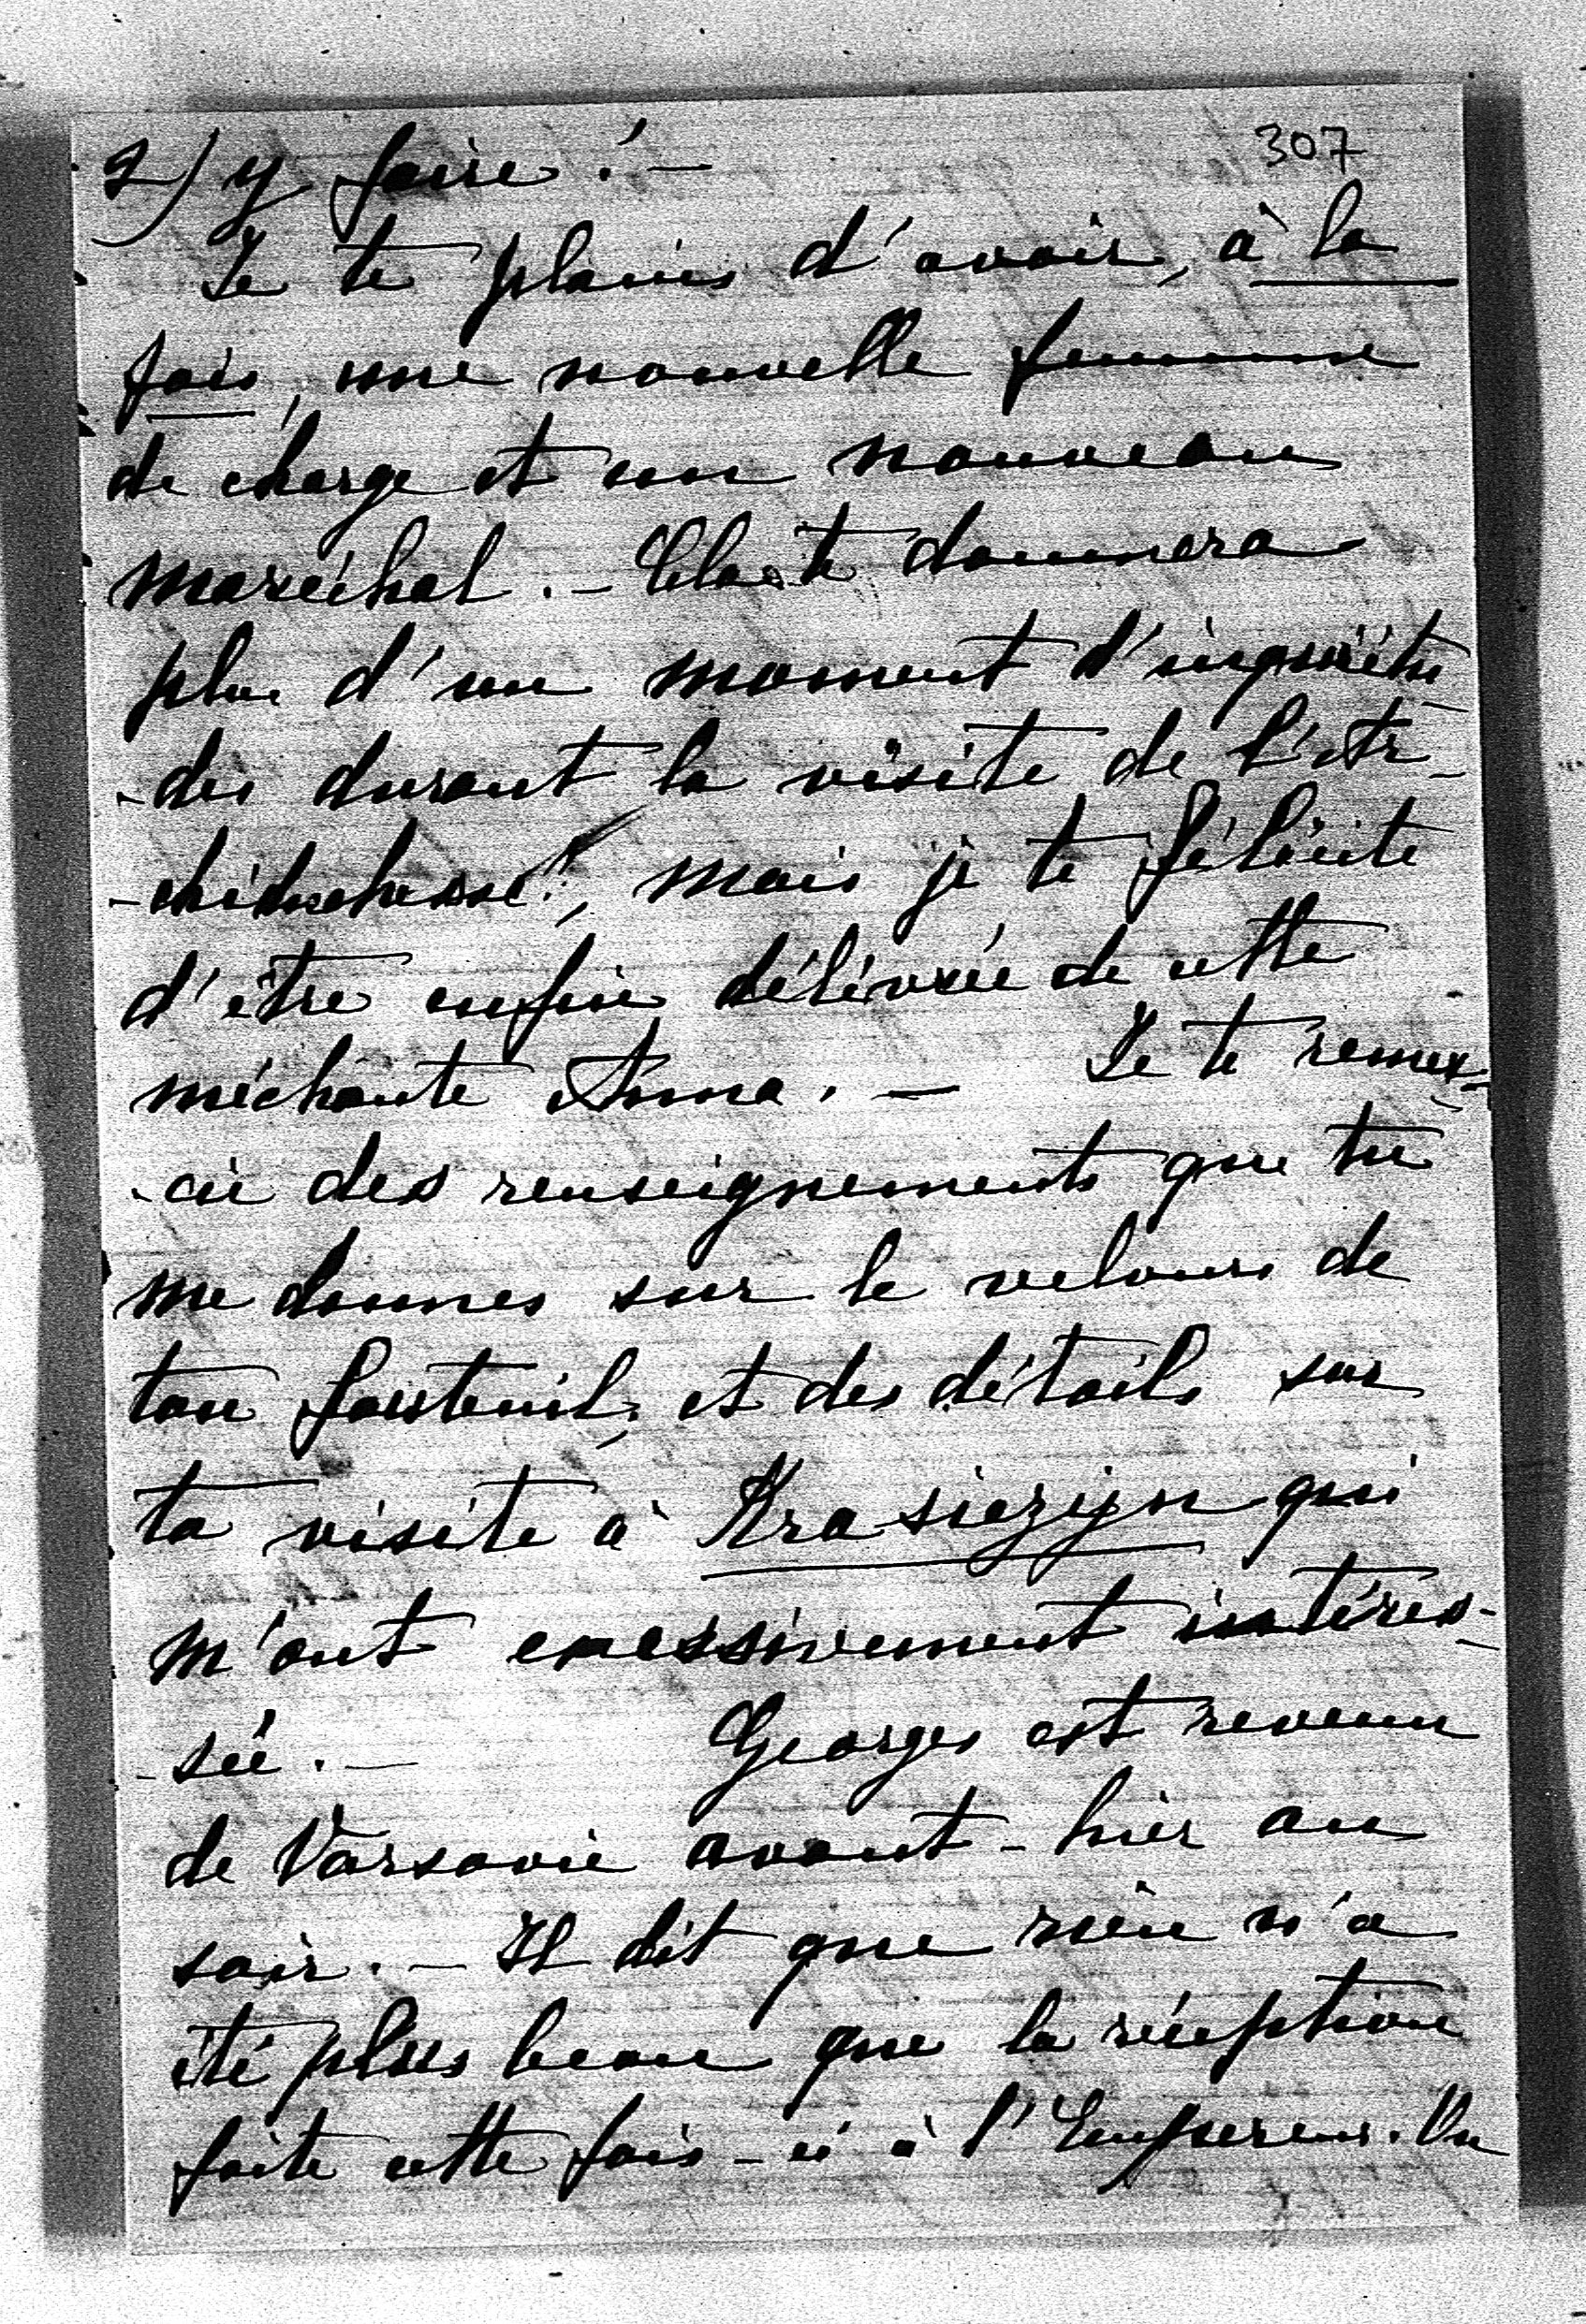 307
2) y faire! —
Je te plains d'avoir, à la
fois, une nouvelle femme
de charge et un nouveau
maréchal. — Cela te donnera
plus d'un moment d'inquiétu-
-des durant la visite de l'Ar-
-chiduchesse!, mais je te félicite
d'être enfin délivrée de cette
méchante Anna. — Je te remer-
-cie des renseignements que tu
me donnes sur le velours de
ton fauteuil, et des détails sur
ta visite à Krasiczyn qui
m'ont excessivement intéres-
-sée. — Georges est revenu
de Varsovie avant-hier au
soir. — Il dit que rien n'a
été plus beau que la réception
faite cette fois-ci à l'Empereur. Un